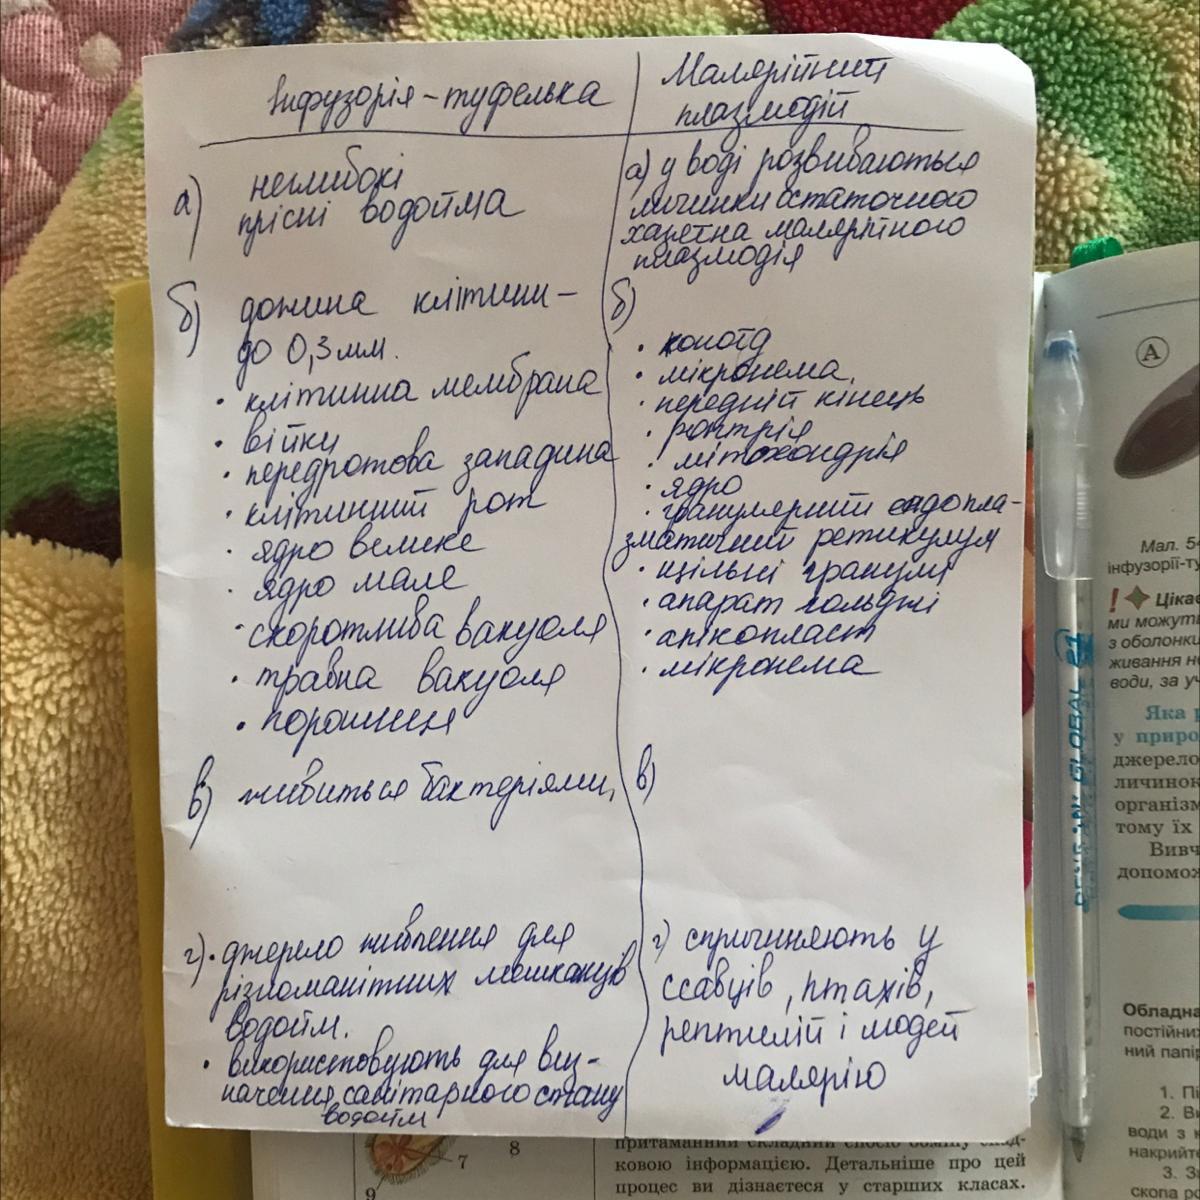 Інфузорія-туфелька
Малярійний
плазмодій
а) неглибокі
прісні водойма
а) у воді розвиваються
личинки остаточного
хазяїна малярійного
плазмодія
б) довжина клітини –
до 0,3 мм.
• клітинна мембрана
• війки
• передротова западина
• клітинний рот
• ядро велике
• ядро мале
• скоротлива вакуоля
• травна вакуоля
• порошиця
б)
• коноїд
• мікронема,
• передній кінець
• роптрія
• мітохондрія
• ядро
• гранулярний ендопла-
зматичний ретикулум
• щільні гранули
• апарат гольджі
• апікопласт
• мікронема
в) живиться бактеріями,
в)
г) • джерело живлення для
різноманітних мешканців
водойм.
• використовують для виз-
начення санітарного стану
водойм
г) спричиняють у
ссавців, птахів,
рептилій і людей
малярію
А
Мал. 54
інфузорії-ту
Цікав
ми можуть
з оболонки
живання не
води, за уч
Яка р
у природ
джерело
личинок
організм
тому їх
Вивч
допомож
GLOBAL 21
Обладна
постійних
ний папір
1. Пі
2. Ви
води з к
накрийте
3. За
скопа ос
7
8
9
притаманний складний спосіб обміну спад-
ковою інформацією. Детальніше про цей
процес ви дізнаєтеся у старших класах.